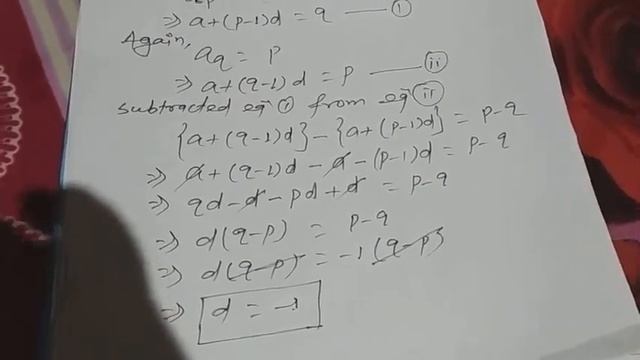 ⇒ a+(p-1)d = q —— ①
Again,
a_q = p
⇒ a+(q-1)d = p —— ⑪
Subtracted eqⁿ ① from eqⁿ ⑪
{a+(q-1)d}-{a+(p-1)d} = p-q
⇒ a+(q-1)d-a-(p-1)d = p-q
⇒ qd-d-pd+d = p-q
⇒ d(q-p) = p-q
⇒ d(q-p) = -1(q-p)
⇒ d = -1